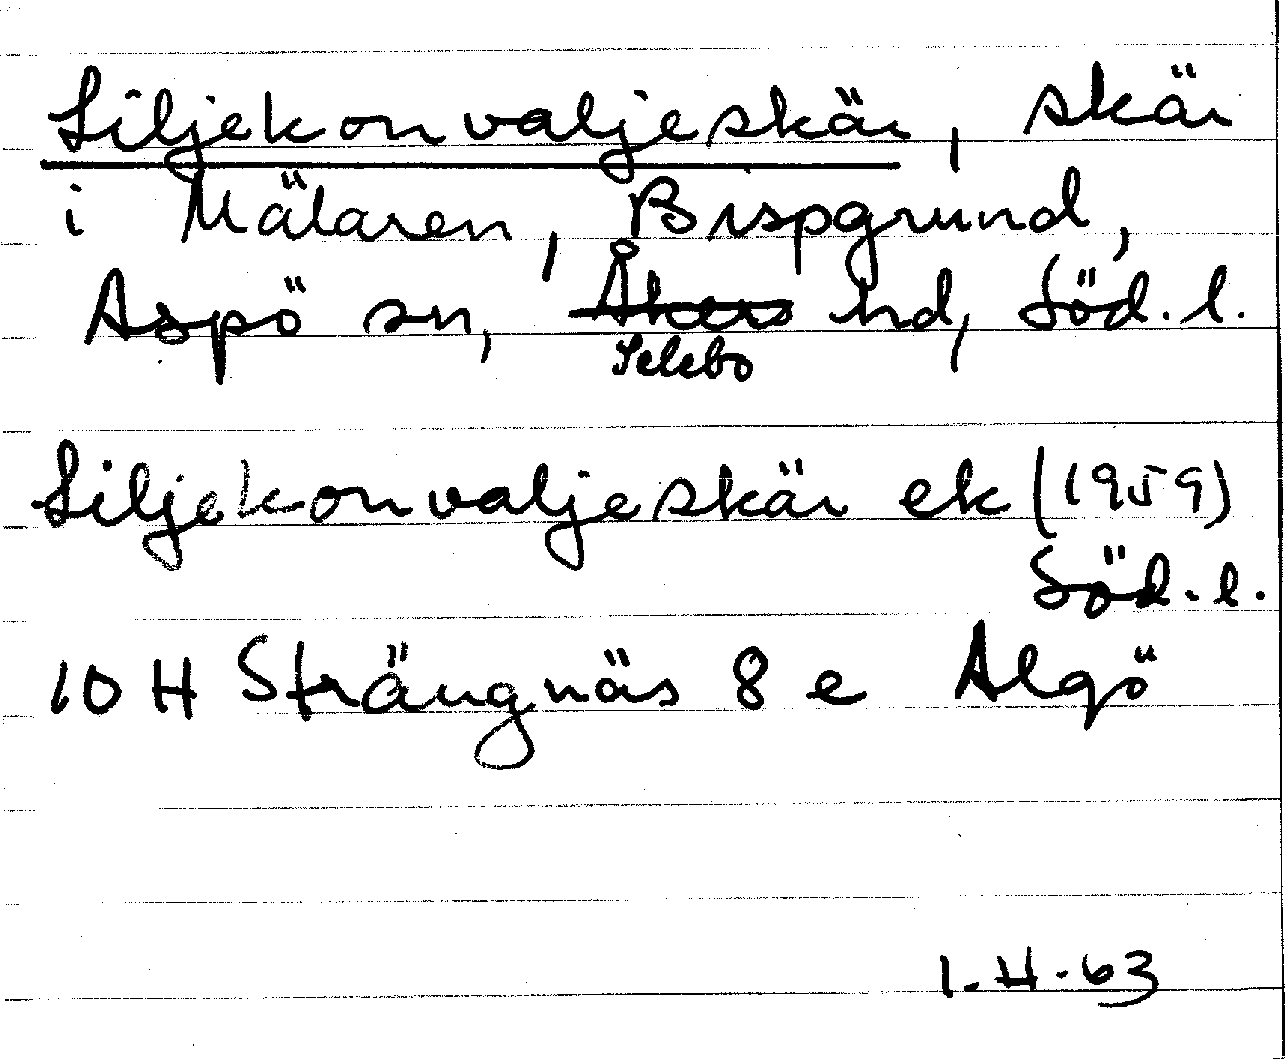 Liljekonvaljeskär, skär
i Mälaren, Bispgrund,
Aspö sn, Åkers hd, Söd. l.
Selebo
Liljekonvaljeskär ek (1959)
Söd. l.
10 H Strängnäs 8 e Algö
1-H-63